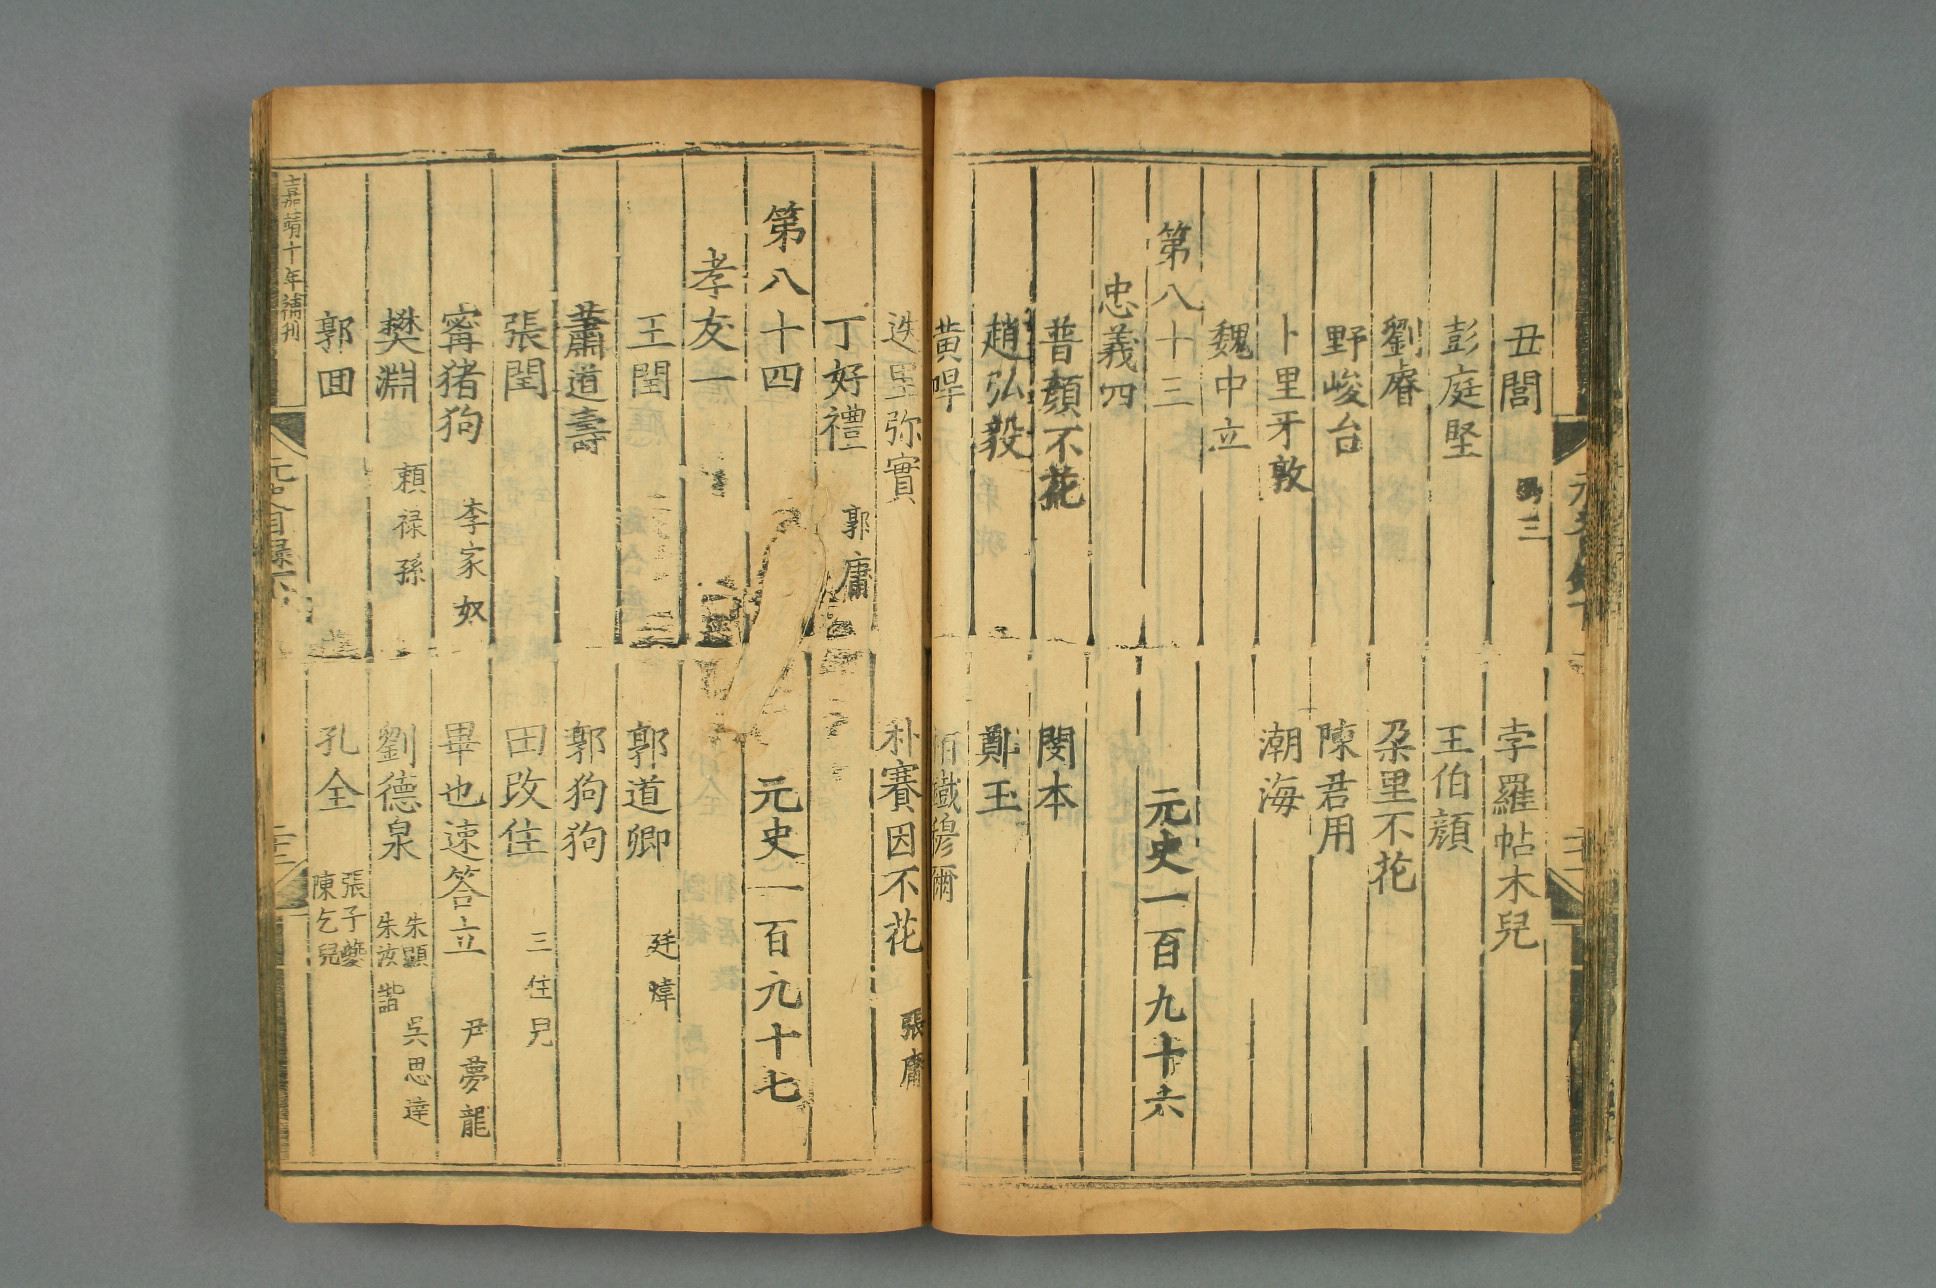 丑閭 孛羅帖木兒
彭庭堅 王伯顔
劉濬 朶里不花
野峻台 陳君用
卜里牙敦 潮海
魏中立
第八十三 元史一百九十六
忠義四
普顔不花 閔本
趙弘毅 鄭玉
黄㖔 栢鐵穆爾
迭里弥實 朴賽因不花 張庸
丁好禮 郭庸
第八十四 元史一百元十七
孝友一
王閏 郭道卿 廷煒
蕭道壽 郭狗狗
張閏 田改住 三住兒
甯猪狗 李家奴 畢也速答立 尹夢龍
樊淵 頼禄孫 劉德泉 朱顯 吳思達
朱汝諧
郭囬 孔全 張子夔
陳乞兒
元史目録下 二十二
嘉靖十年補刊